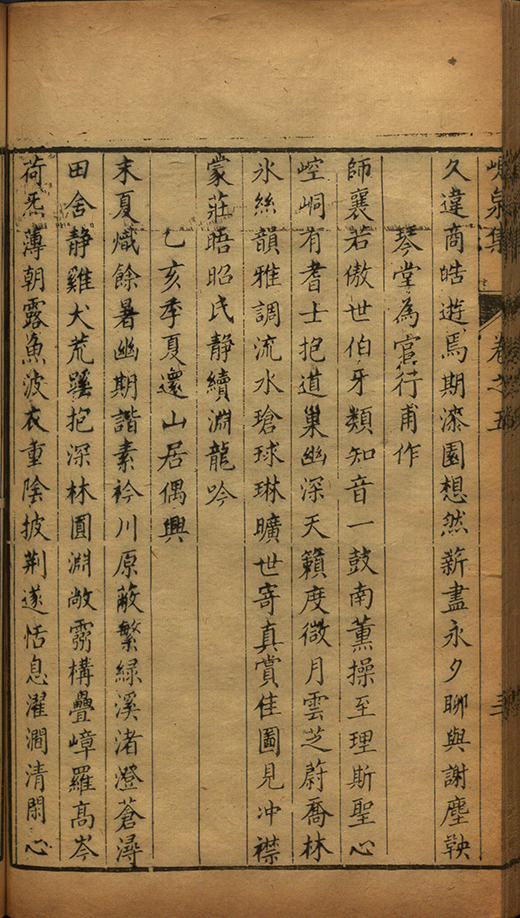 峴泉集 卷之五
久違商皓遊焉期漆園想然薪盡永夕聊與謝塵鞅
琴堂為賔行甫作
師襄若傲世伯牙類知音一鼓南薰操至理斯聖心
崆峒有耆士抱道巢幽深天籟度微月雲芝蔚喬林
氷絲韻雅調流水瑲球琳曠世寄真賞佳圖見冲襟
蒙莊晤昭氏静續淵龍吟
乙亥季夏還山居偶興
末夏熾餘暑幽期諧素衿川原蔽繁綠溪渚澄蒼潯
田舍静雞犬荒蹊抱深林圓淵敞霧構疊嶂羅髙岑
荷炁薄朝露魚波衣重陰披荆遂恬息濯澗清閑心